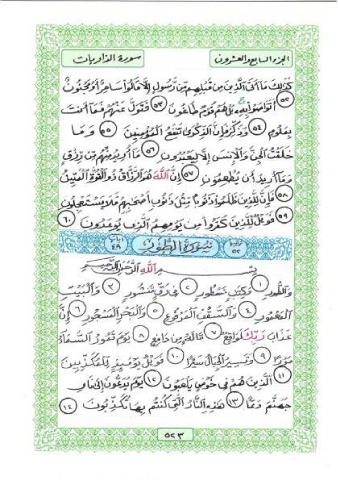 الجزء السابع والعشرون سورة الذاريات
كَذَٰلِكَ مَا أَتَى الَّذِينَ مِن قَبْلِهِم مِّن رَّسُولٍ إِلَّا قَالُوا سَاحِرٌ أَوْ مَجْنُونٌ
٥٢ أَتَوَاصَوْا بِهِ بَلْ هُمْ قَوْمٌ طَاغُونَ ٥٣ فَتَوَلَّ عَنْهُمْ فَمَا أَنتَ
بِمَلُومٍ ٥٤ وَذَكِّرْ فَإِنَّ الذِّكْرَىٰ تَنفَعُ الْمُؤْمِنِينَ ٥٥ وَمَا
خَلَقْتُ الْجِنَّ وَالْإِنسَ إِلَّا لِيَعْبُدُونِ ٥٦ مَا أُرِيدُ مِنْهُم مِّن رِّزْقٍ
وَمَا أُرِيدُ أَن يُطْعِمُونِ ٥٧ إِنَّ اللَّهَ هُوَ الرَّزَّاقُ ذُو الْقُوَّةِ الْمَتِينُ
٥٨ فَإِنَّ لِلَّذِينَ ظَلَمُوا ذَنُوبًا مِّثْلَ ذَنُوبِ أَصْحَابِهِمْ فَلَا يَسْتَعْجِلُونِ
٥٩ فَوَيْلٌ لِّلَّذِينَ كَفَرُوا مِن يَوْمِهِمُ الَّذِي يُوعَدُونَ ٦٠
٥٢ سورة الطور ٤٩
بِسْمِ اللَّهِ الرَّحْمَٰنِ الرَّحِيمِ
وَالطُّورِ ١ وَكِتَابٍ مَّسْطُورٍ ٢ فِي رَقٍّ مَّنشُورٍ ٣ وَالْبَيْتِ
الْمَعْمُورِ ٤ وَالسَّقْفِ الْمَرْفُوعِ ٥ وَالْبَحْرِ الْمَسْجُورِ ٦ إِنَّ
عَذَابَ رَبِّكَ لَوَاقِعٌ ٧ مَّا لَهُ مِن دَافِعٍ ٨ يَوْمَ تَمُورُ السَّمَاءُ
مَوْرًا ٩ وَتَسِيرُ الْجِبَالُ سَيْرًا ١٠ فَوَيْلٌ يَوْمَئِذٍ لِّلْمُكَذِّبِينَ
١١ الَّذِينَ هُمْ فِي خَوْضٍ يَلْعَبُونَ ١٢ يَوْمَ يُدَعُّونَ إِلَىٰ نَارِ
جَهَنَّمَ دَعًّا ١٣ هَٰذِهِ النَّارُ الَّتِي كُنتُم بِهَا تُكَذِّبُونَ ١٤
٥٢٣